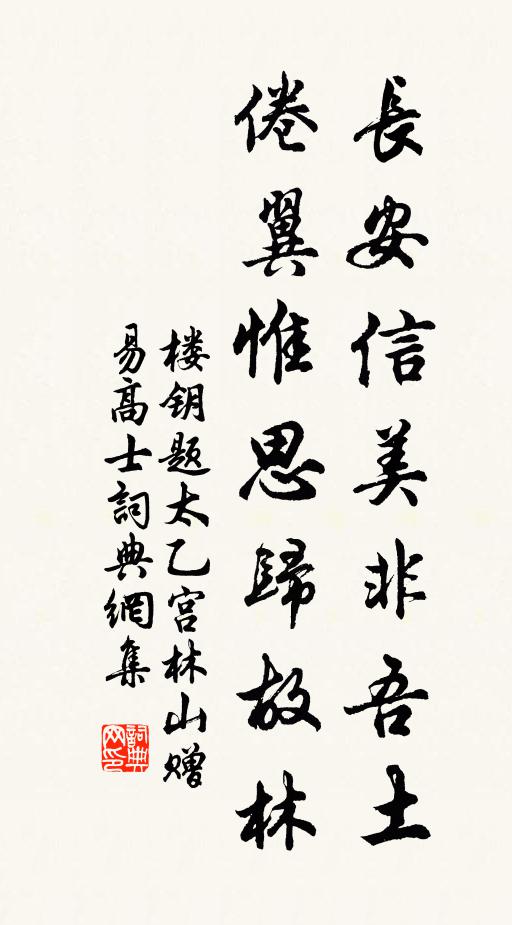 長安信美非吾土
倦翼惟思歸故林
楼钥题太乙宫林山赠
易高士詞典網集
詞典
网印